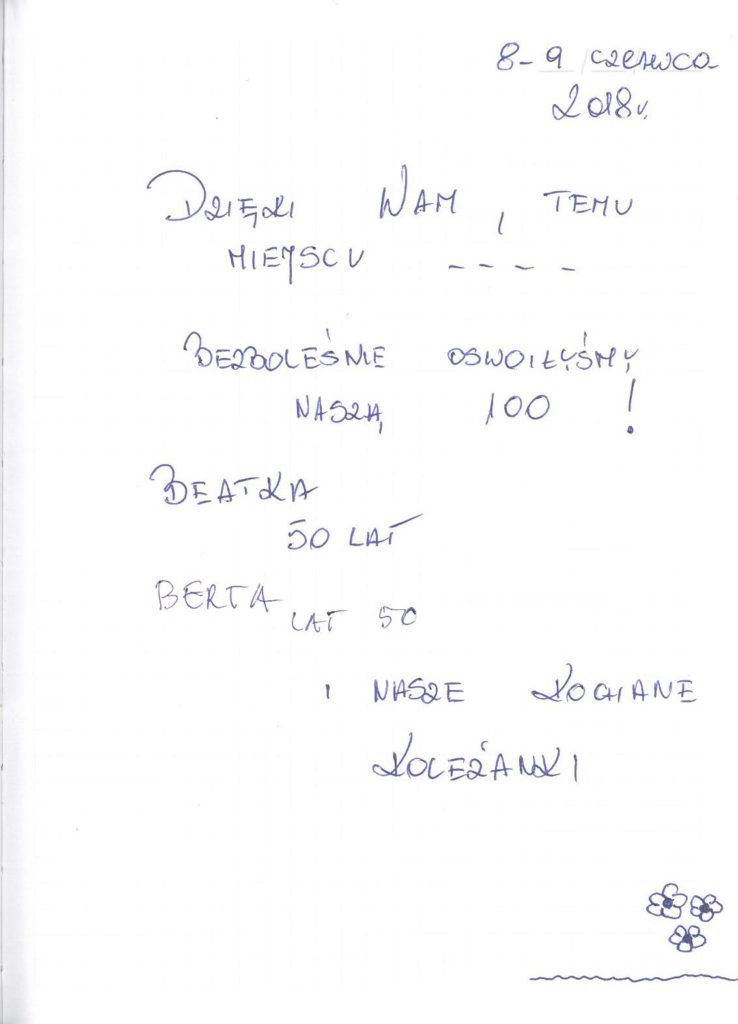 8-9 czerwca
2018r.
DZIĘKI WAM, TEMU
MIEJSCU ----
BEZBOLEŚNIE OSWOIŁYŚMY
NASZĄ 100!
BEATKA
50 LAT
BERTA
LAT 50
I NASZE KOCHANE
KOLEŻANKI